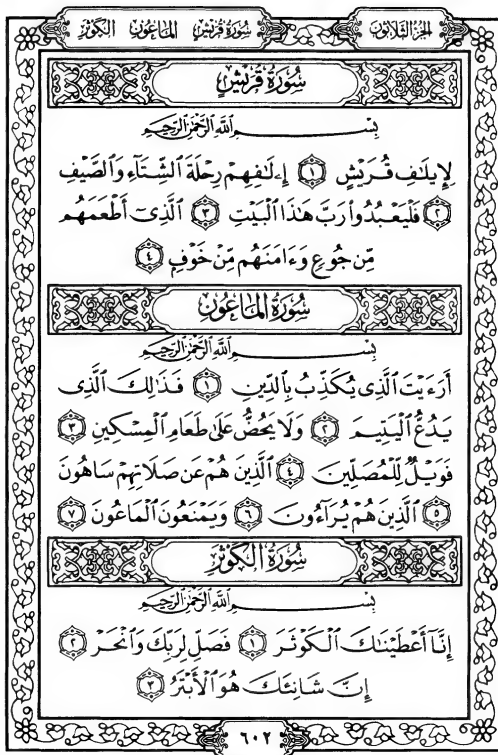 الجزء الثلاثون
سورة قريش الماعون الكوثر
سُورَةُ قُرَيْشٍ
بِسْمِ اللَّهِ الرَّحْمَٰنِ الرَّحِيمِ
لِإِيلَٰفِ قُرَيْشٍ ١ إِۦلَٰفِهِمْ رِحْلَةَ ٱلشِّتَآءِ وَٱلصَّيْفِ
٢ فَلْيَعْبُدُوا۟ رَبَّ هَٰذَا ٱلْبَيْتِ ٣ ٱلَّذِىٓ أَطْعَمَهُم
مِّن جُوعٍ وَءَامَنَهُم مِّنْ خَوْفٍ ٤
سُورَةُ المَاعُونِ
بِسْمِ اللَّهِ الرَّحْمَٰنِ الرَّحِيمِ
أَرَءَيْتَ ٱلَّذِى يُكَذِّبُ بِٱلدِّينِ ١ فَذَٰلِكَ ٱلَّذِى
يَدُعُّ ٱلْيَتِيمَ ٢ وَلَا يَحُضُّ عَلَىٰ طَعَامِ ٱلْمِسْكِينِ ٣
فَوَيْلٌ لِّلْمُصَلِّينَ ٤ ٱلَّذِينَ هُمْ عَن صَلَاتِهِمْ سَاهُونَ
٥ ٱلَّذِينَ هُمْ يُرَآءُونَ ٦ وَيَمْنَعُونَ ٱلْمَاعُونَ ٧
سُورَةُ الكَوْثَرِ
بِسْمِ اللَّهِ الرَّحْمَٰنِ الرَّحِيمِ
إِنَّآ أَعْطَيْنَٰكَ ٱلْكَوْثَرَ ١ فَصَلِّ لِرَبِّكَ وَٱنْحَرْ ٢
إِنَّ شَانِئَكَ هُوَ ٱلْأَبْتَرُ ٣
٦٠٢